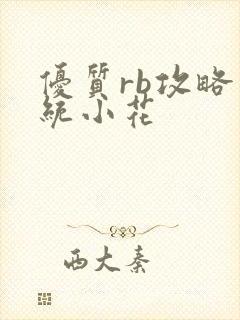 優質rb攻略
統小花
西大秦